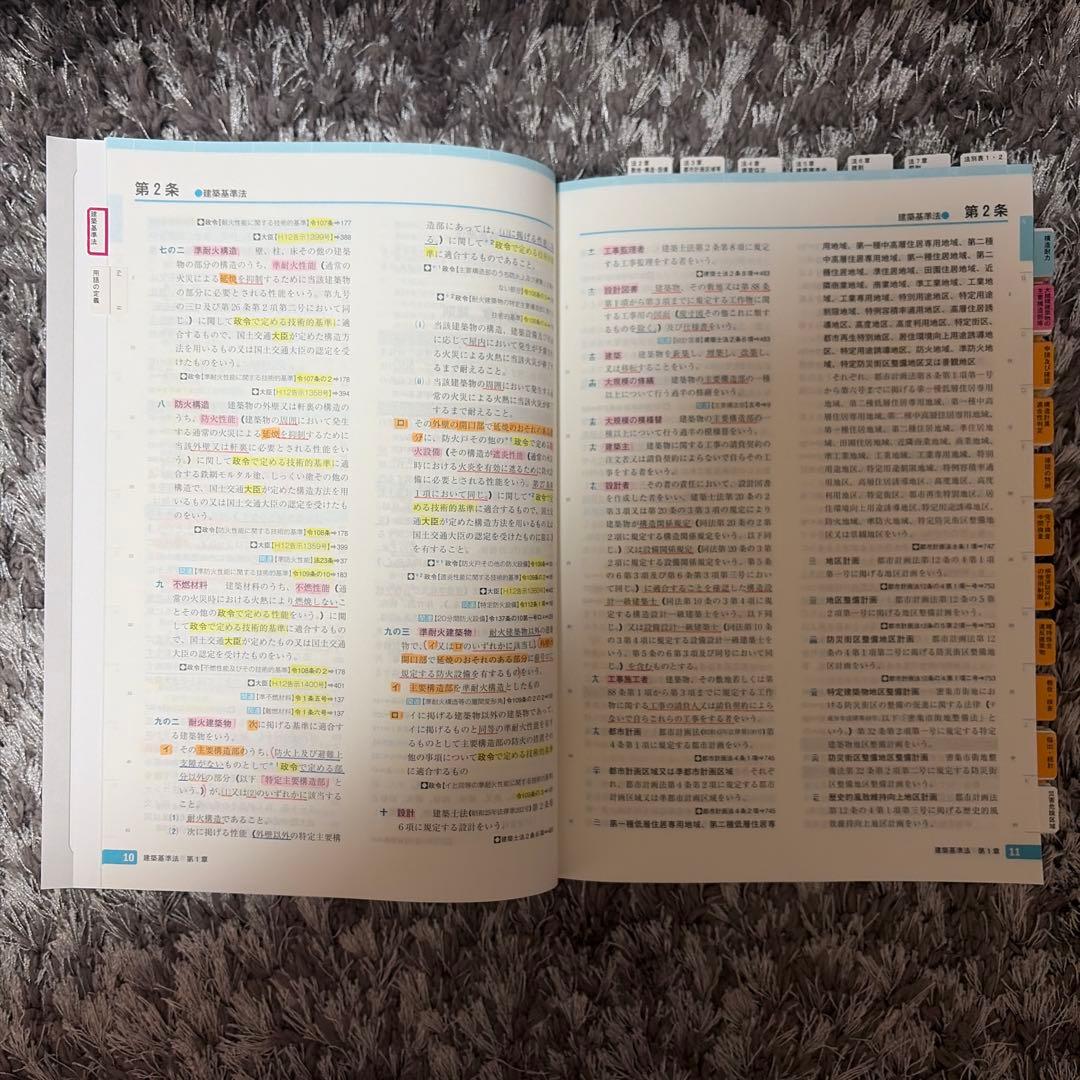 第2条 ●建築基準法
建築基準法
用語の定義
政令[耐火性能に関する技術的基準]令107条⇒177
大臣[H12告示1399号]⇒388
七の二 準耐火構造 壁、柱、床その他の建築
物の部分の構造のうち、準耐火性能(通常の
火災による延焼を抑制するために当該建築物
の部分に必要とされる性能をいう。第九号
の三ロ及び第26条第2項第二号において同
じ。)に関して政令で定める技術的基準に適
合するもので、国土交通大臣が定めた構造方
法を用いるもの又は国土交通大臣の認定を受
けたものをいう。
政令[準耐火性能に関する技術的基準]令107条の2⇒178
大臣[H12告示1358号]⇒394
八 防火構造 建築物の外壁又は軒裏の構造の
うち、防火性能(建築物の周囲において発生す
る通常の火災による延焼を抑制するために
当該外壁又は軒裏に必要とされる性能をい
う。)に関して政令で定める技術的基準に適
合する鉄網モルタル塗、しっくい塗その他の
構造で、国土交通大臣が定めた構造方法を用
いるもの又は国土交通大臣の認定を受けたも
のをいう。
政令[防火性能に関する技術的基準]令108条⇒178
大臣[H12告示1359号]⇒399
関連[準防火性能]法23条⇒37
関連[準防火性能に関する技術的基準]令109条の10⇒183
九 不燃材料 建築材料のうち、不燃性能(通
常の火災時における火熱により燃焼しないこ
とその他の政令で定める性能をいう。)に関
して政令で定める技術的基準に適合するもの
で、国土交通大臣が定めたもの又は国土交通大臣
の認定を受けたものをいう。
政令[不燃性能及びその技術的基準]令108条の2⇒178
大臣[H12告示1400号]⇒401
関連[準不燃材料]令1条五号⇒137
関連[難燃材料]令1条六号⇒137
九の二 耐火建築物 次に掲げる基準に適合す
る建築物をいう。
イ その主要構造部のうち、防火上及び避難上
支障がないものとして*1政令で定める部
分以外の部分(以下「特定主要構造部」と
いう。)が、(1)又は(2)のいずれかに該当する
こと。
(1) 耐火構造であること。
(2) 次に掲げる性能(外壁以外の特定主要構
10 建築基準法|第1章
造部にあっては、(i)に掲げる性能に限
る。)に関して*2政令で定める技術的基
準に適合するものであること。
(i) 当該建築物の構造、建築設備及び用途
に応じて屋内において発生が予測され
る火災による火熱に当該火災が終了す
るまで耐えること。
(ii) 当該建築物の周囲において発生する通
常の火災による火熱に当該火災が終了
するまで耐えること。
ロ その外壁の開口部で延焼のおそれのある部
分に、防火戸その他の*1政令で定める防
火設備(その構造が遮炎性能(通常の火災
時における火炎を有効に遮るために防火設
備に必要とされる性能をいう。第27条第
1項において同じ。)に関して*2政令で定
める技術的基準に適合するもので、国土交
通大臣が定めた構造方法を用いるもの又は
国土交通大臣の認定を受けたものに限る。)
を有すること。
*1政令[防火戸その他の防火設備]
*2政令[遮炎性能に関する技術的基準]
大臣[H12告示1360号]
関連[特定防火設備]令112条1項
関連[20分間防火設備]令137条の10第一号ロ
九の三 準耐火建築物 耐火建築物以外の建築
物で、イ又はロのいずれかに該当し、外壁の
開口部で延焼のおそれのある部分に前号ロに
規定する防火設備を有するものをいう。
イ 主要構造部を準耐火構造としたもの
関連[準耐火構造等の層間変形角]令109条の2の2
ロ イに掲げる建築物以外の建築物であって、
イに掲げるものと同等の準耐火性能を有す
るものとして主要構造部の防火の措置その
他の事項について政令で定める技術的基準
に適合するもの
十 設計 建築士法(昭和25年法律第202号)第2条第
6項に規定する設計をいう。
建築士法2条6項
建築基準法● 第2条
十一 工事監理者 建築士法第2条第8項に規定
する工事監理をする者をいう。
建築士法2条8項⇒483
十二 設計図書 建築物、その敷地又は第88条
第1項から第3項までに規定する工作物に関
する工事用の図面(現寸図その他これに類
するものを除く。)及び仕様書をいう。
十三 建築 建築物を新築し、増築し、改築し、
又は移転することをいう。
十四 大規模の修繕 建築物の主要構造部の一種
以上について行う過半の修繕をいう。
十五 大規模の模様替 建築物の主要構造部の
一種以上について行う過半の模様替をいう。
十六 建築主 建築物に関する工事の請負契約の
注文者又は請負契約によらないで自らその工
事をする者をいう。
十七 設計者 その者の責任において、設計図書
を作成した者をいい、建築士法第20条の2
第3項又は第20条の3第3項の規定により
建築物が構造関係規定(同法第20条の2第
2項に規定する構造関係規定をいう。以下同
じ。)又は設備関係規定(同法第20条の3第
2項に規定する設備関係規定をいう。第5条
の6第3項及び第6条第3項第三号において
同じ。)に適合することを確認した構造設
計一級建築士(同法第10条の3第4項に規
定する構造設計一級建築士をいう。以下同
じ。)又は設備設計一級建築士(同法第10条
の3第4項に規定する設備設計一級建築士を
いう。第5条の6第3項及び同号において同
じ。)を含むものとする。
十八 工事施工者 建築物、その敷地若しくは第
88条第1項から第3項までに規定する工作
物に関する工事の請負人又は請負契約によら
ないで自らこれらの工事をする者をいう。
十九 都市計画 都市計画法(昭和43年法律第100号)第
4条第1項に規定する都市計画をいう。
都市計画法4条1項⇒745
二十 都市計画区域又は準都市計画区域 それぞ
れ、都市計画法第4条第2項に規定する都市
計画区域又は準都市計画区域をいう。
都市計画法4条2項⇒745
二十一 第一種低層住居専用地域、第二種低層住居専
用地域、第一種中高層住居専用地域、第二種
中高層住居専用地域、第一種住居地域、第二
種住居地域、準住居地域、田園住居地域、近
隣商業地域、商業地域、準工業地域、工業地
域、工業専用地域、特別用途地区、特定用途
制限地域、特例容積率適用地区、高層住居誘
導地区、高度地区、高度利用地区、特定街区、
都市再生特別地区、居住環境向上用途誘導地
区、特定用途誘導地区、防火地域、準防火地
域、特定防災街区整備地区又は景観地区
それぞれ、都市計画法第8条第1項第一号
から第六号までに掲げる第一種低層住居専用
地域、第二種低層住居専用地域、第一種中高
層住居専用地域、第二種中高層住居専用地域、
第一種住居地域、第二種住居地域、準住居地
域、田園住居地域、近隣商業地域、商業地域、
準工業地域、工業地域、工業専用地域、特別
用途地区、特定用途制限地域、特例容積率適
用地区、高層住居誘導地区、高度地区、高度
利用地区、特定街区、都市再生特別地区、居
住環境向上用途誘導地区、特定用途誘導地区、
防火地域、準防火地域、特定防災街区整備地
区又は景観地区をいう。
都市計画法8条1項⇒747
二十二 地区計画 都市計画法第12条の4第1項
第一号に掲げる地区計画をいう。
都市計画法12条の4第1項一号⇒753
二十三 地区整備計画 都市計画法第12条の5第
2項第一号に掲げる地区整備計画をいう。
二十四 防災街区整備地区計画 都市計画法第12
条の4第1項第二号に掲げる防災街区整備地
区計画をいう。
都市計画法12条の4第1項二号⇒753
二十五 特定建築物地区整備計画 密集市街地に
おける防災街区の整備の促進に関する法律(
以下「密集市街地整備法」と
いう。)第32条第2項第一号に規定する特定
建築物地区整備計画をいう。
二十六 防災街区整備地区整備計画 密集市街地整
備法第32条第2項第二号に規定する防災街
区整備地区整備計画をいう。
二十七 歴史的風致維持向上地区計画 都市計画法
第12条の4第1項第三号に掲げる歴史的風
致維持向上地区計画をいう。
建築基準法|第1章 11
法2章
法3章
法4章
法5章
法6章
法7章
法別表1・2
構造耐力
申請及び確認
構造計算
適合性判定
確認の特例
完了検査
中間検査
報告・検査
届出・統計
災害危険区域